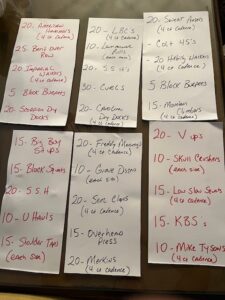 20- American Hammers
(4 ct cadence)
25- Bent Over
Row
20- Imperial Walkers
(4 ct cadence)
5 Block Burpees
20-
Dry
Docks
20- LBC's
(4 ct cadence)
10-
(each side)
20- S.S.H
30- Curls
20- Carolina
Dry Docks
(4 ct cadence)
20-
(4 ct cadence)
- Colt 45's
20
(4 ct cadence)
5 Block Burpees
15- Mountain
Climbers
(4 ct cadence)
15- Big Boy
Sit ups
15- Block Squats
20- S.S.H
10- U Hauls
15- Shoulder Taps
(each side)
20- Freddy Mercury
(4 ct cadence)
10-
(each side)
20- Seal Claps
(4 ct cadence)
15- Overhead
Press
20- Merkins
(4 ct cadence)
20- V ups
10- Skull Crushers
(each side)
15- Low Slow Squats
(4 ct cadence)
15- KBS's
10- Mike Tysons
(4 ct cadence)